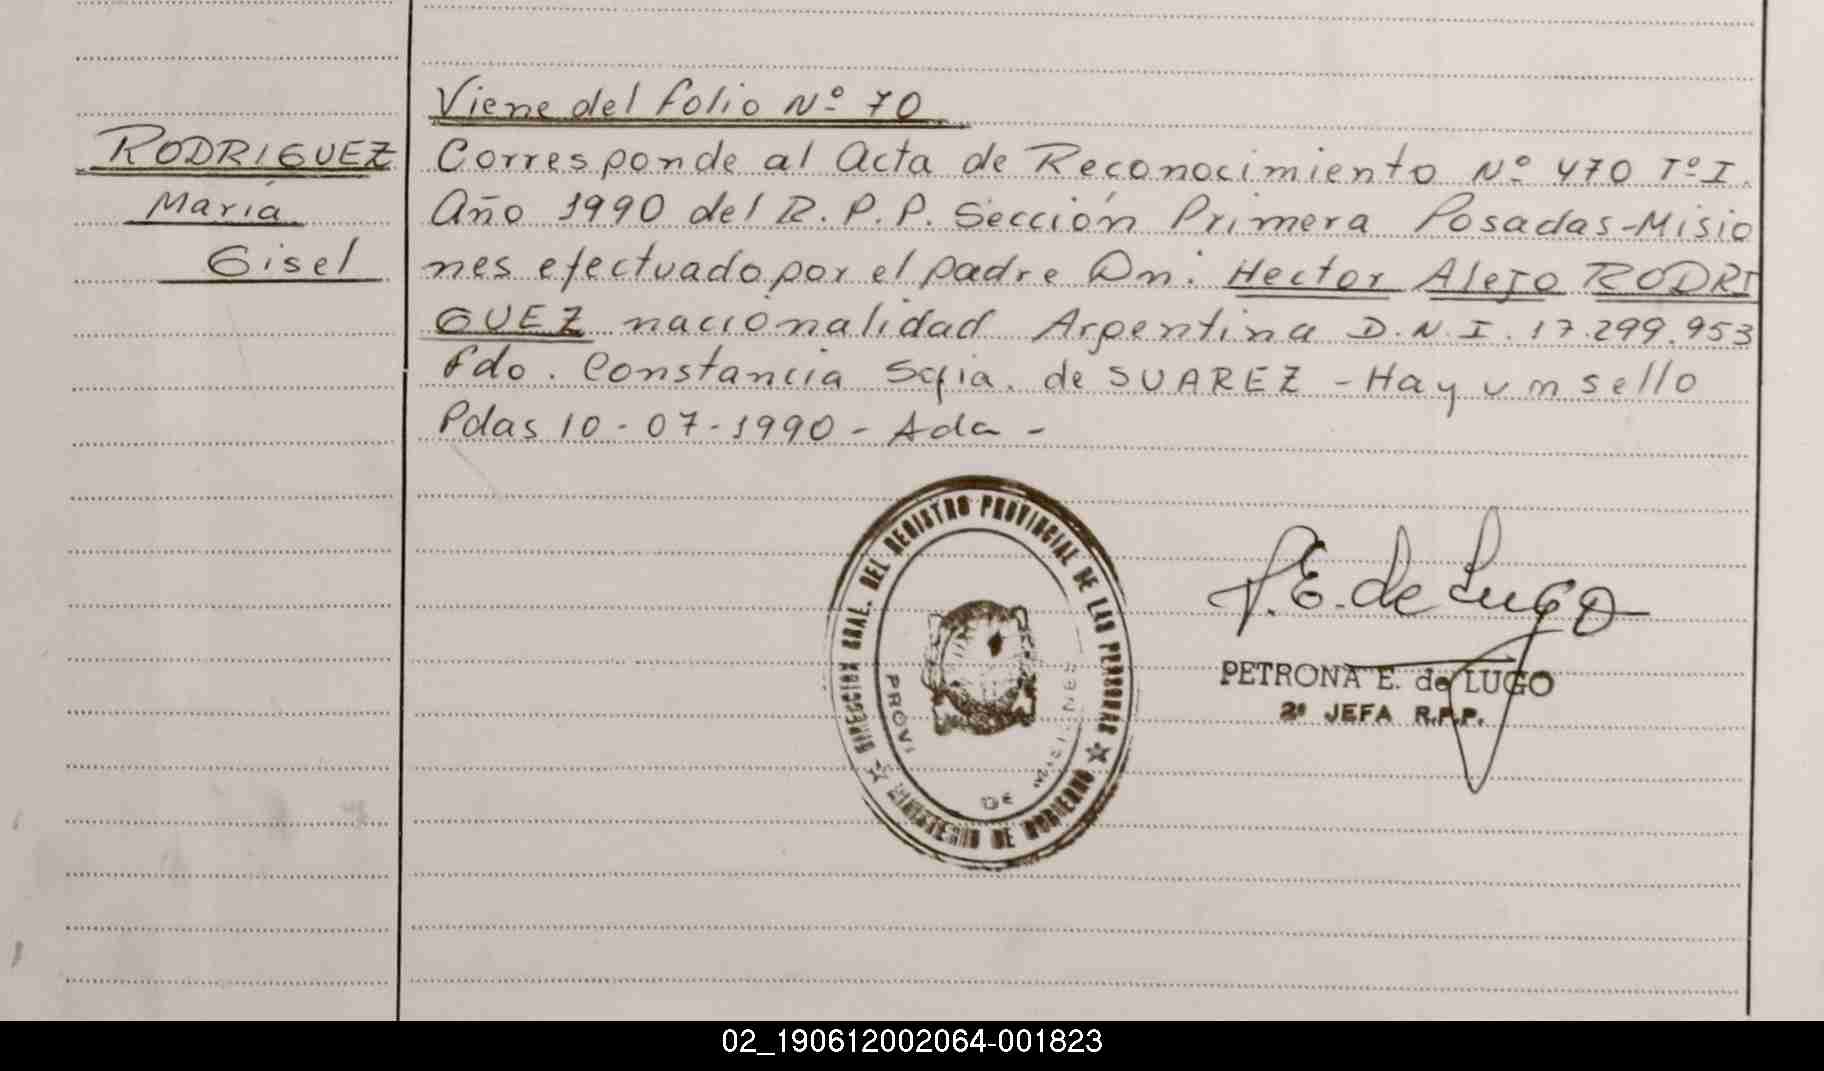 Viene del folio Nº 70
RODRIGUEZ
Maria
Gisel
Corresponde al Acta de Reconocimiento Nº 470 Tº I.
Año 1990 del R.P.P. Sección Primera Posadas-Misio
nes efectuado por el padre Dn. Hector Alejo RODRI
GUEZ nacionalidad Argentina D.N.I. 17.299.953
fdo. Constancia Sofia. de SUAREZ - Hay un sello
Pdas 10-07-1990 - Ada -
DIRECCION GRAL. DEL REGISTRO PROVINCIAL DE LAS PERSONAS
MINISTERIO DE GOBIERNO
PROVI
DE MISIONES
P.E. de Lugo
PETRONA E. de LUGO
2ª JEFA R.P.P.
02_190612002064-001823